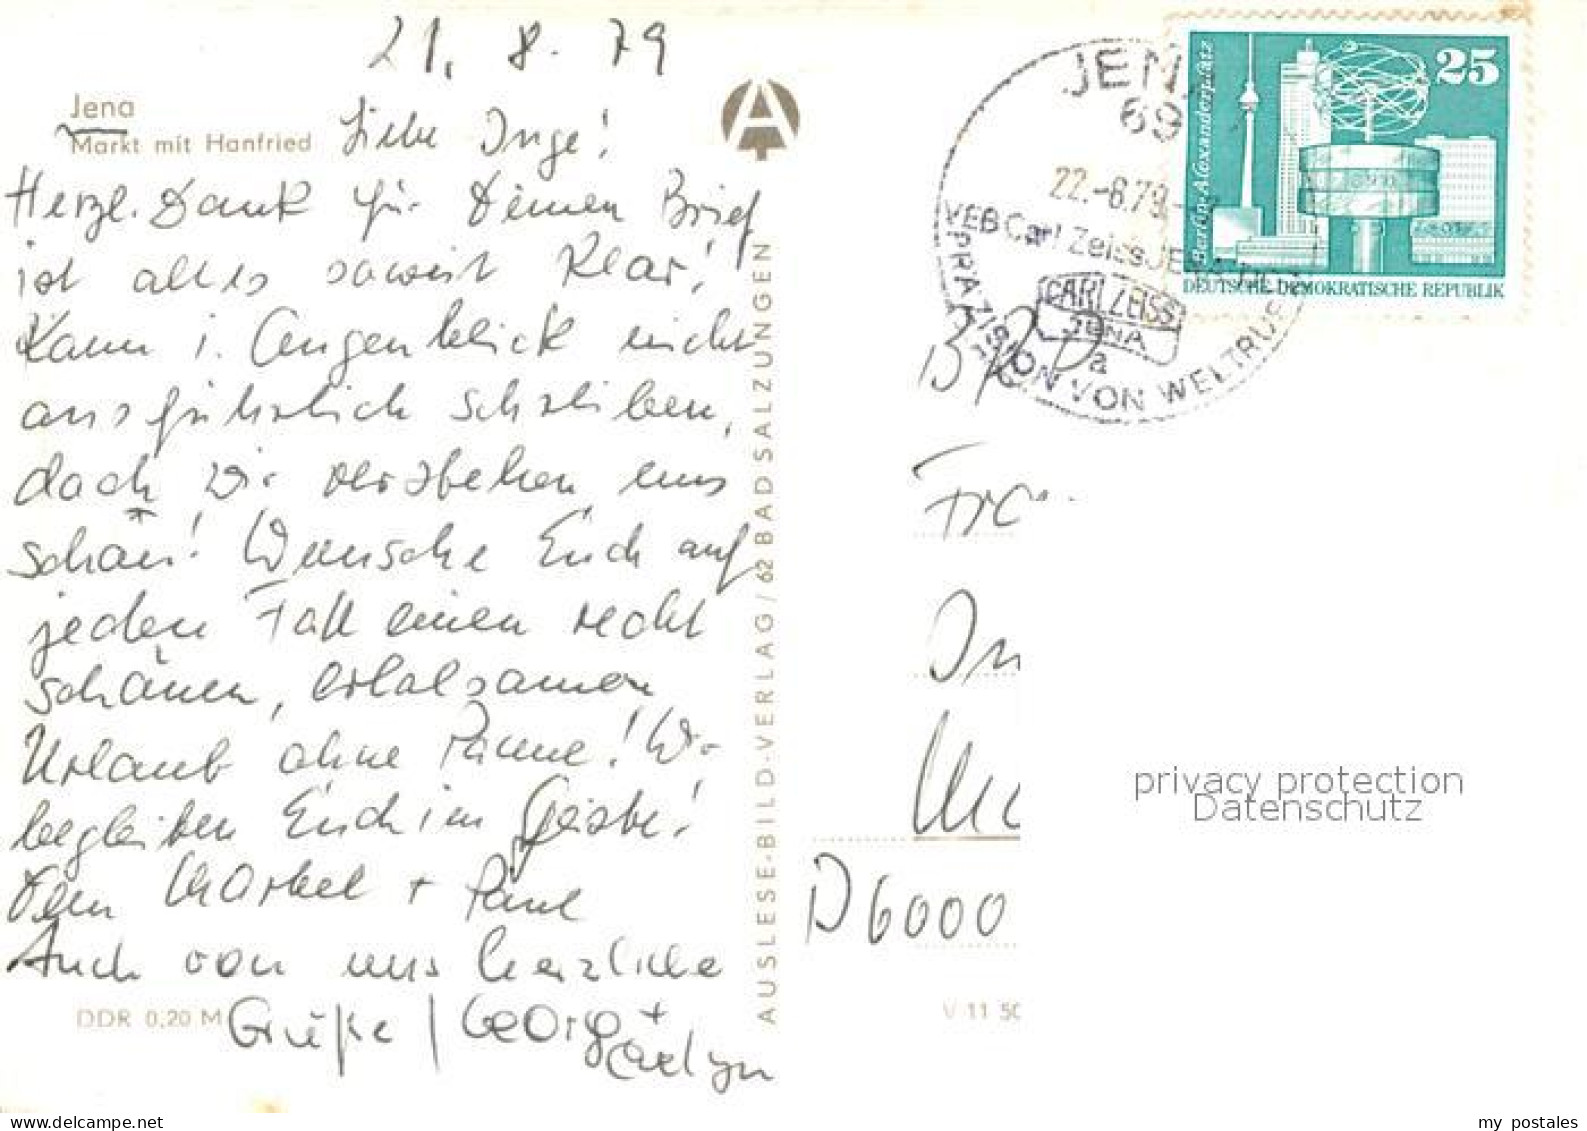 21. 8. 79
Jena
Markt mit Hanfried
Liebe Inge!
Herzl. Dank für Deinen Brief
ist alles soweit klar!
Kann i. Augenblick nicht
ausführlich schreiben,
doch wir verstehen uns
schon! Wünsche Euch auf
jeden Fall einen recht
schönen, erholsamen
Urlaub ohne Panne! Wir
begleiten Euch im Geiste!
Dein + Paul
Auch von uns herzliche
Grüße / Georg +
DDR 0,20 M
AUSLESE-BILD-VERLAG / 62 BAD SALZUNGEN
A
JENA
69
22.-8.79.-
VEB Carl Zeiss JENA
CARL ZEISS
JENA
a
PRÄZISION VON WELTRUF
Berlin-Alexanderplatz
25
DEUTSCHE DEMOKRATISCHE REPUBLIK
BRD
D 6000
V 11 50
privacy protection
Datenschutz
my postales